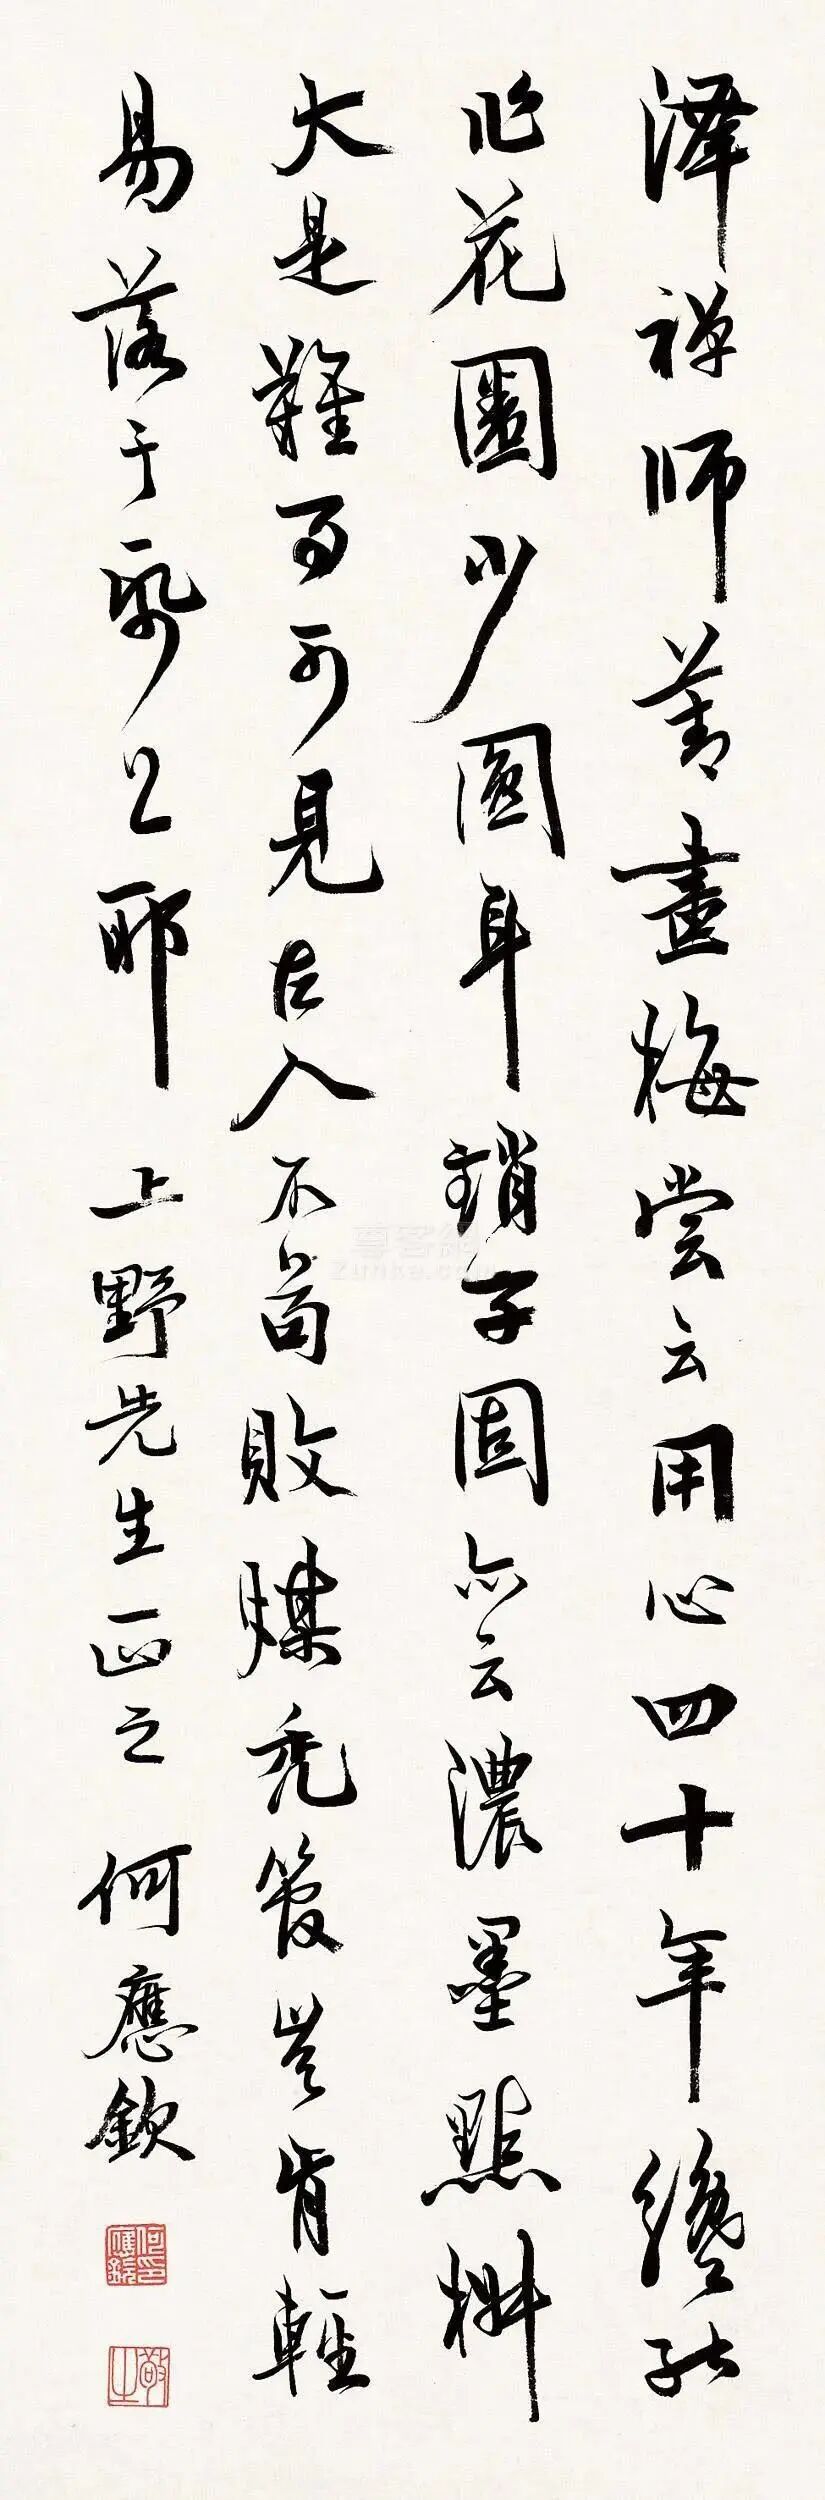 泽禅师善畫梅尝云用心四十年纔能
作花圈少圆耳鍺子固亦云濃墨點椒
大是難事可見古人不苟敗煤禿管豈肯輕
易落于紙上耶
上野先生正之
何應欽
何應欽印
敬之
尊客網
Zunke.com